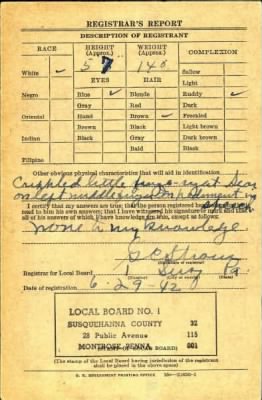 REGISTRAR'S REPORT
DESCRIPTION OF REGISTRANT
RACE HEIGHT (Approx.) WEIGHT (Approx.) COMPLEXION
White ✓ 5 7 140 Sallow
EYES HAIR Light
Negro Blue ✓ Blonde Ruddy ✓
Gray Red Dark
Oriental Hazel Brown ✓ Freckled
Brown Black Light brown
Indian Black Gray Dark brown
Bald Black
Filipino
Other obvious physical characteristics that will aid in identification
Crippled little finger
on left middle finger impediment in
speech
I certify that my answers are true; that the person registered has read or has had
read to him his own answers; that I have witnessed his signature or mark and that
all of his answers of which I have knowledge are true, except as follows:
None to my knowledge
Registrar for Local Board 1 Susq Pa.
Date of registration 6-29-42
LOCAL BOARD NO. 1
SUSQUEHANNA COUNTY 32
28 Public Avenue 115
MONTROSE, PENNA 001
(STAMP OF LOCAL BOARD)
(The stamp of the Local Board having jurisdiction of the registrant
shall be placed in the above space)
U. S. GOVERNMENT PRINTING OFFICE